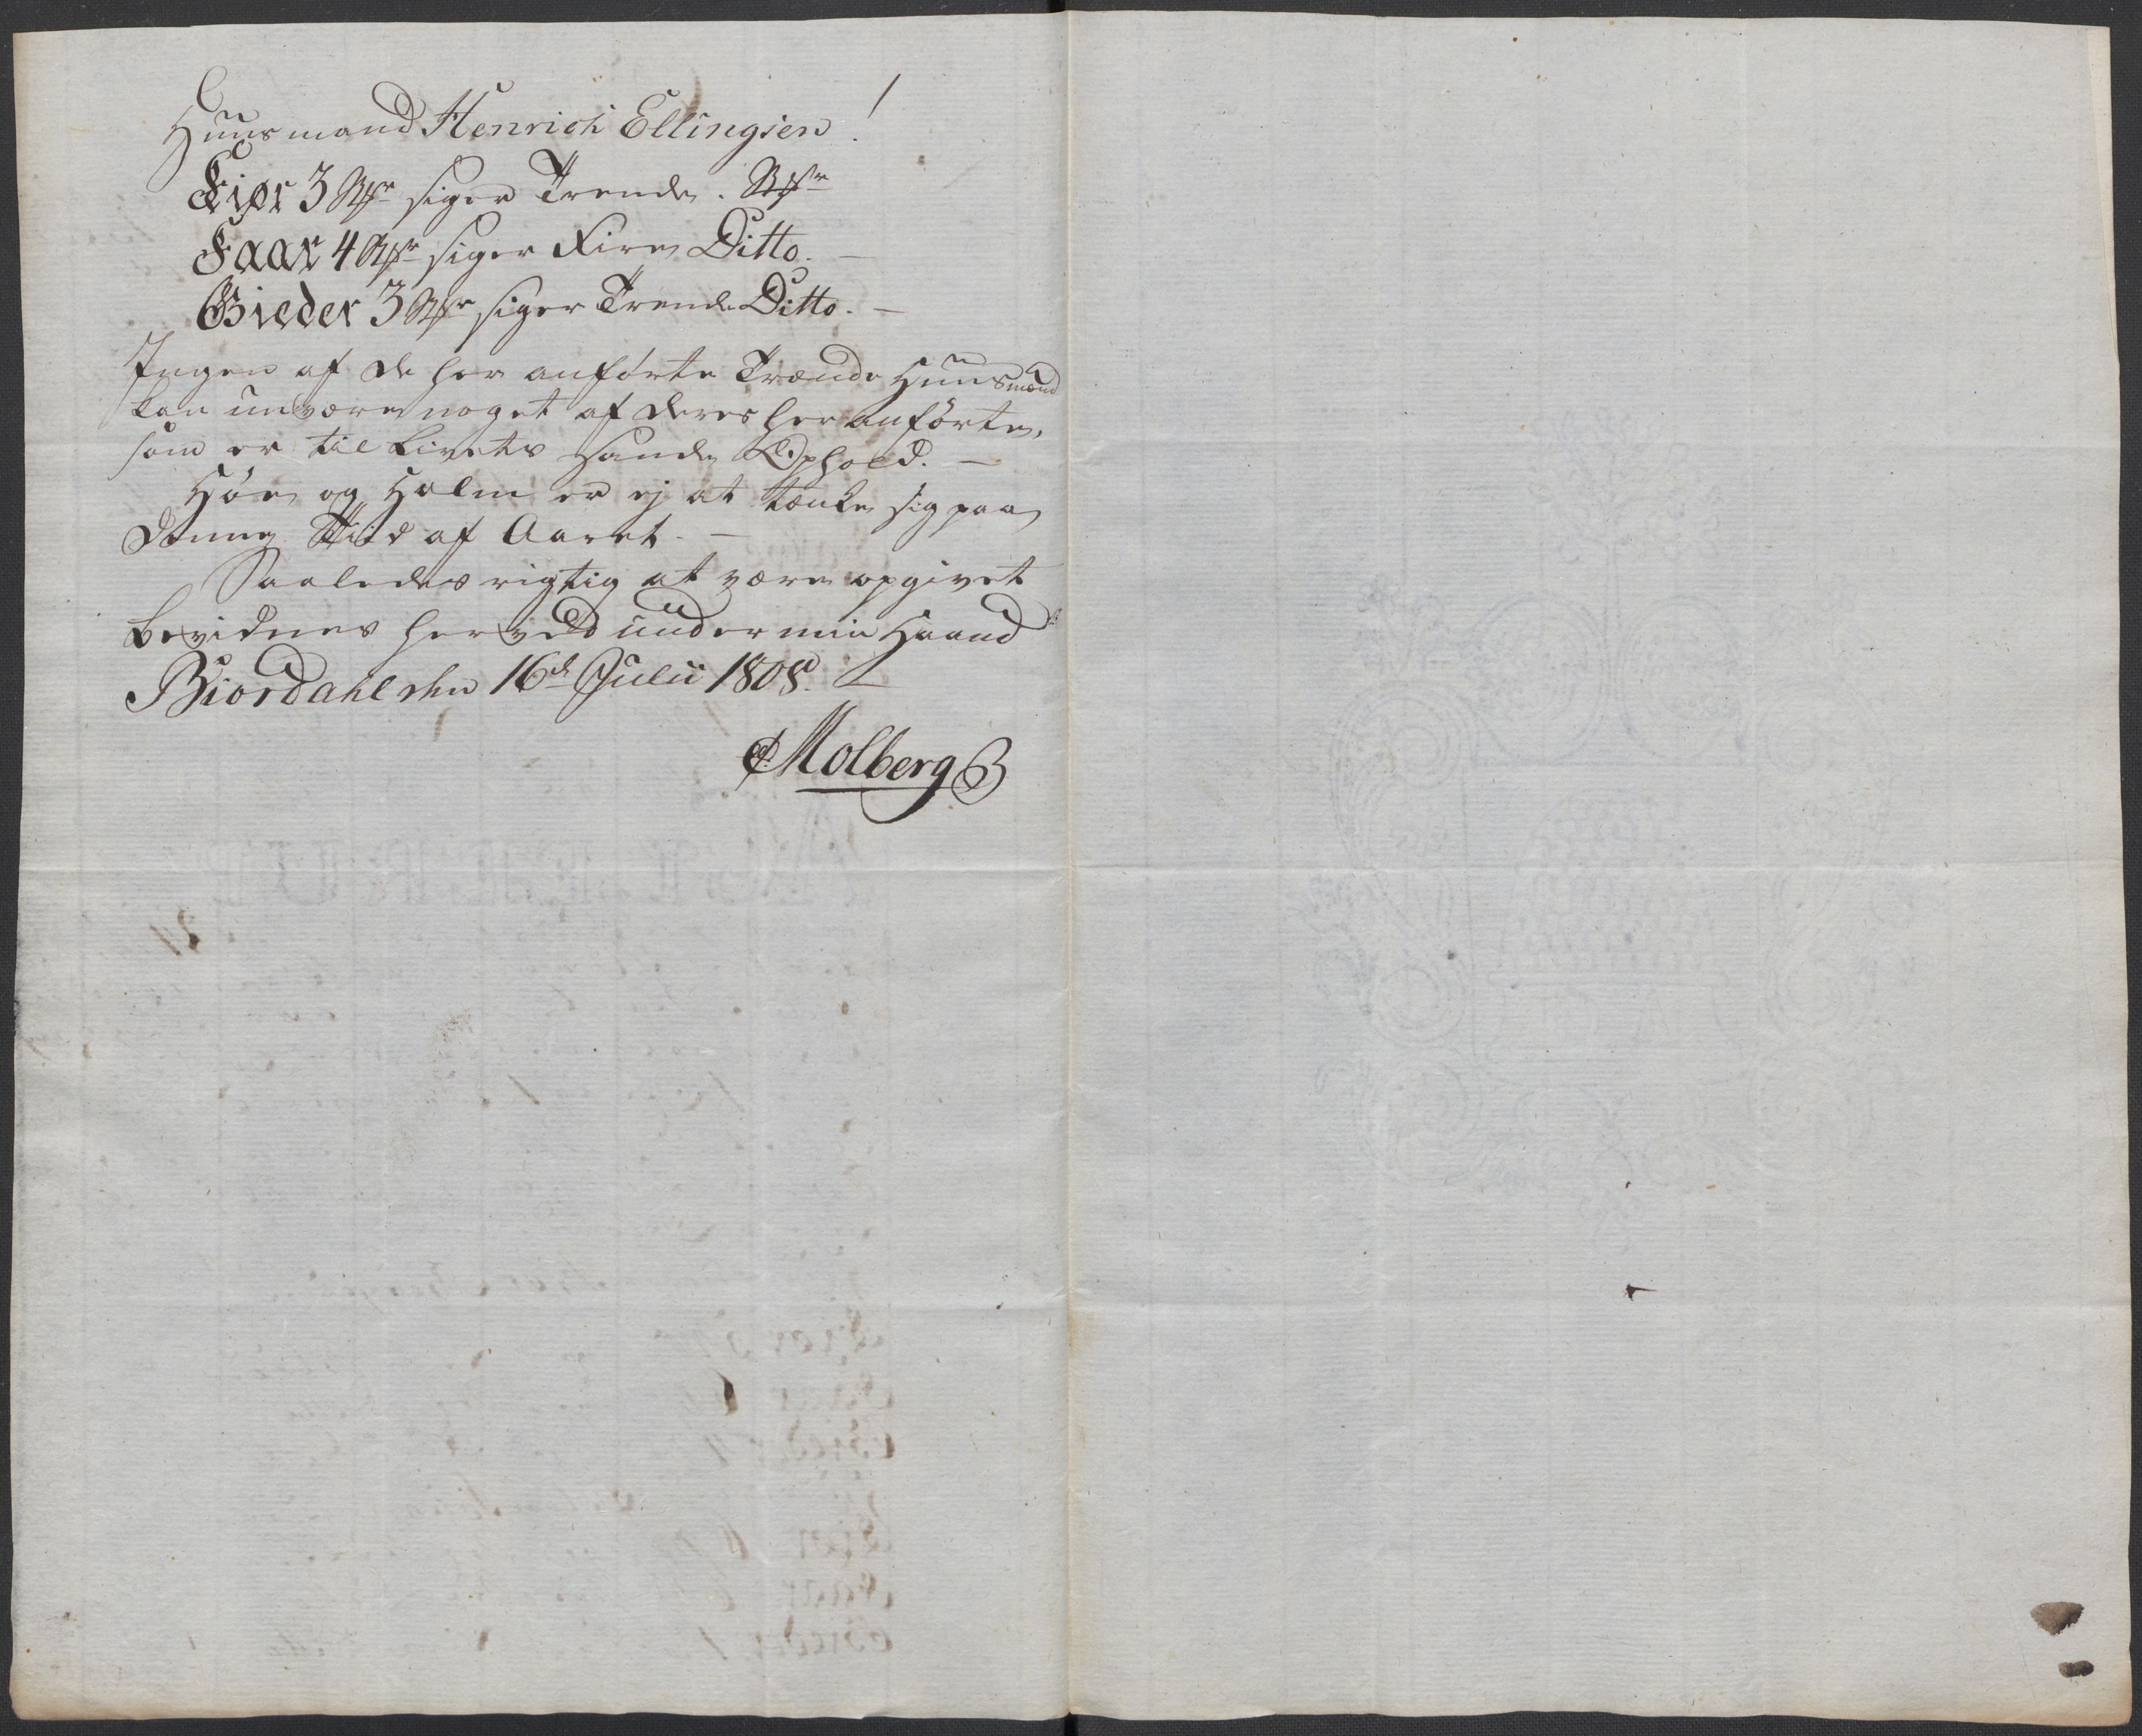 Huusmand Henrich Ellingsen!
Kiør 3 Stkr siger Trende. Stkr
Faar 4 Stkr siger Fire Ditto. —
Gieder 3 Stkr siger Trende Ditto. —
Ingen af de her anførte Trende Huusmænd
kan undvære noget af deres her anførte,
som er til Livets Ophold. —
Høe og Halm er ej at tænke sig paa
denne Tiid af Aaret. —
Saaledes rigtig at være opgivet
bevidnes herved under min Haand
Biordahl den 16de Julii 1808. —
Molberg